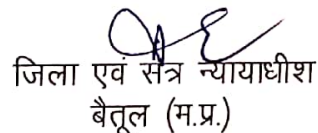 जिला एवं सत्र न्यायाधीश
बैतूल (म.प्र.)